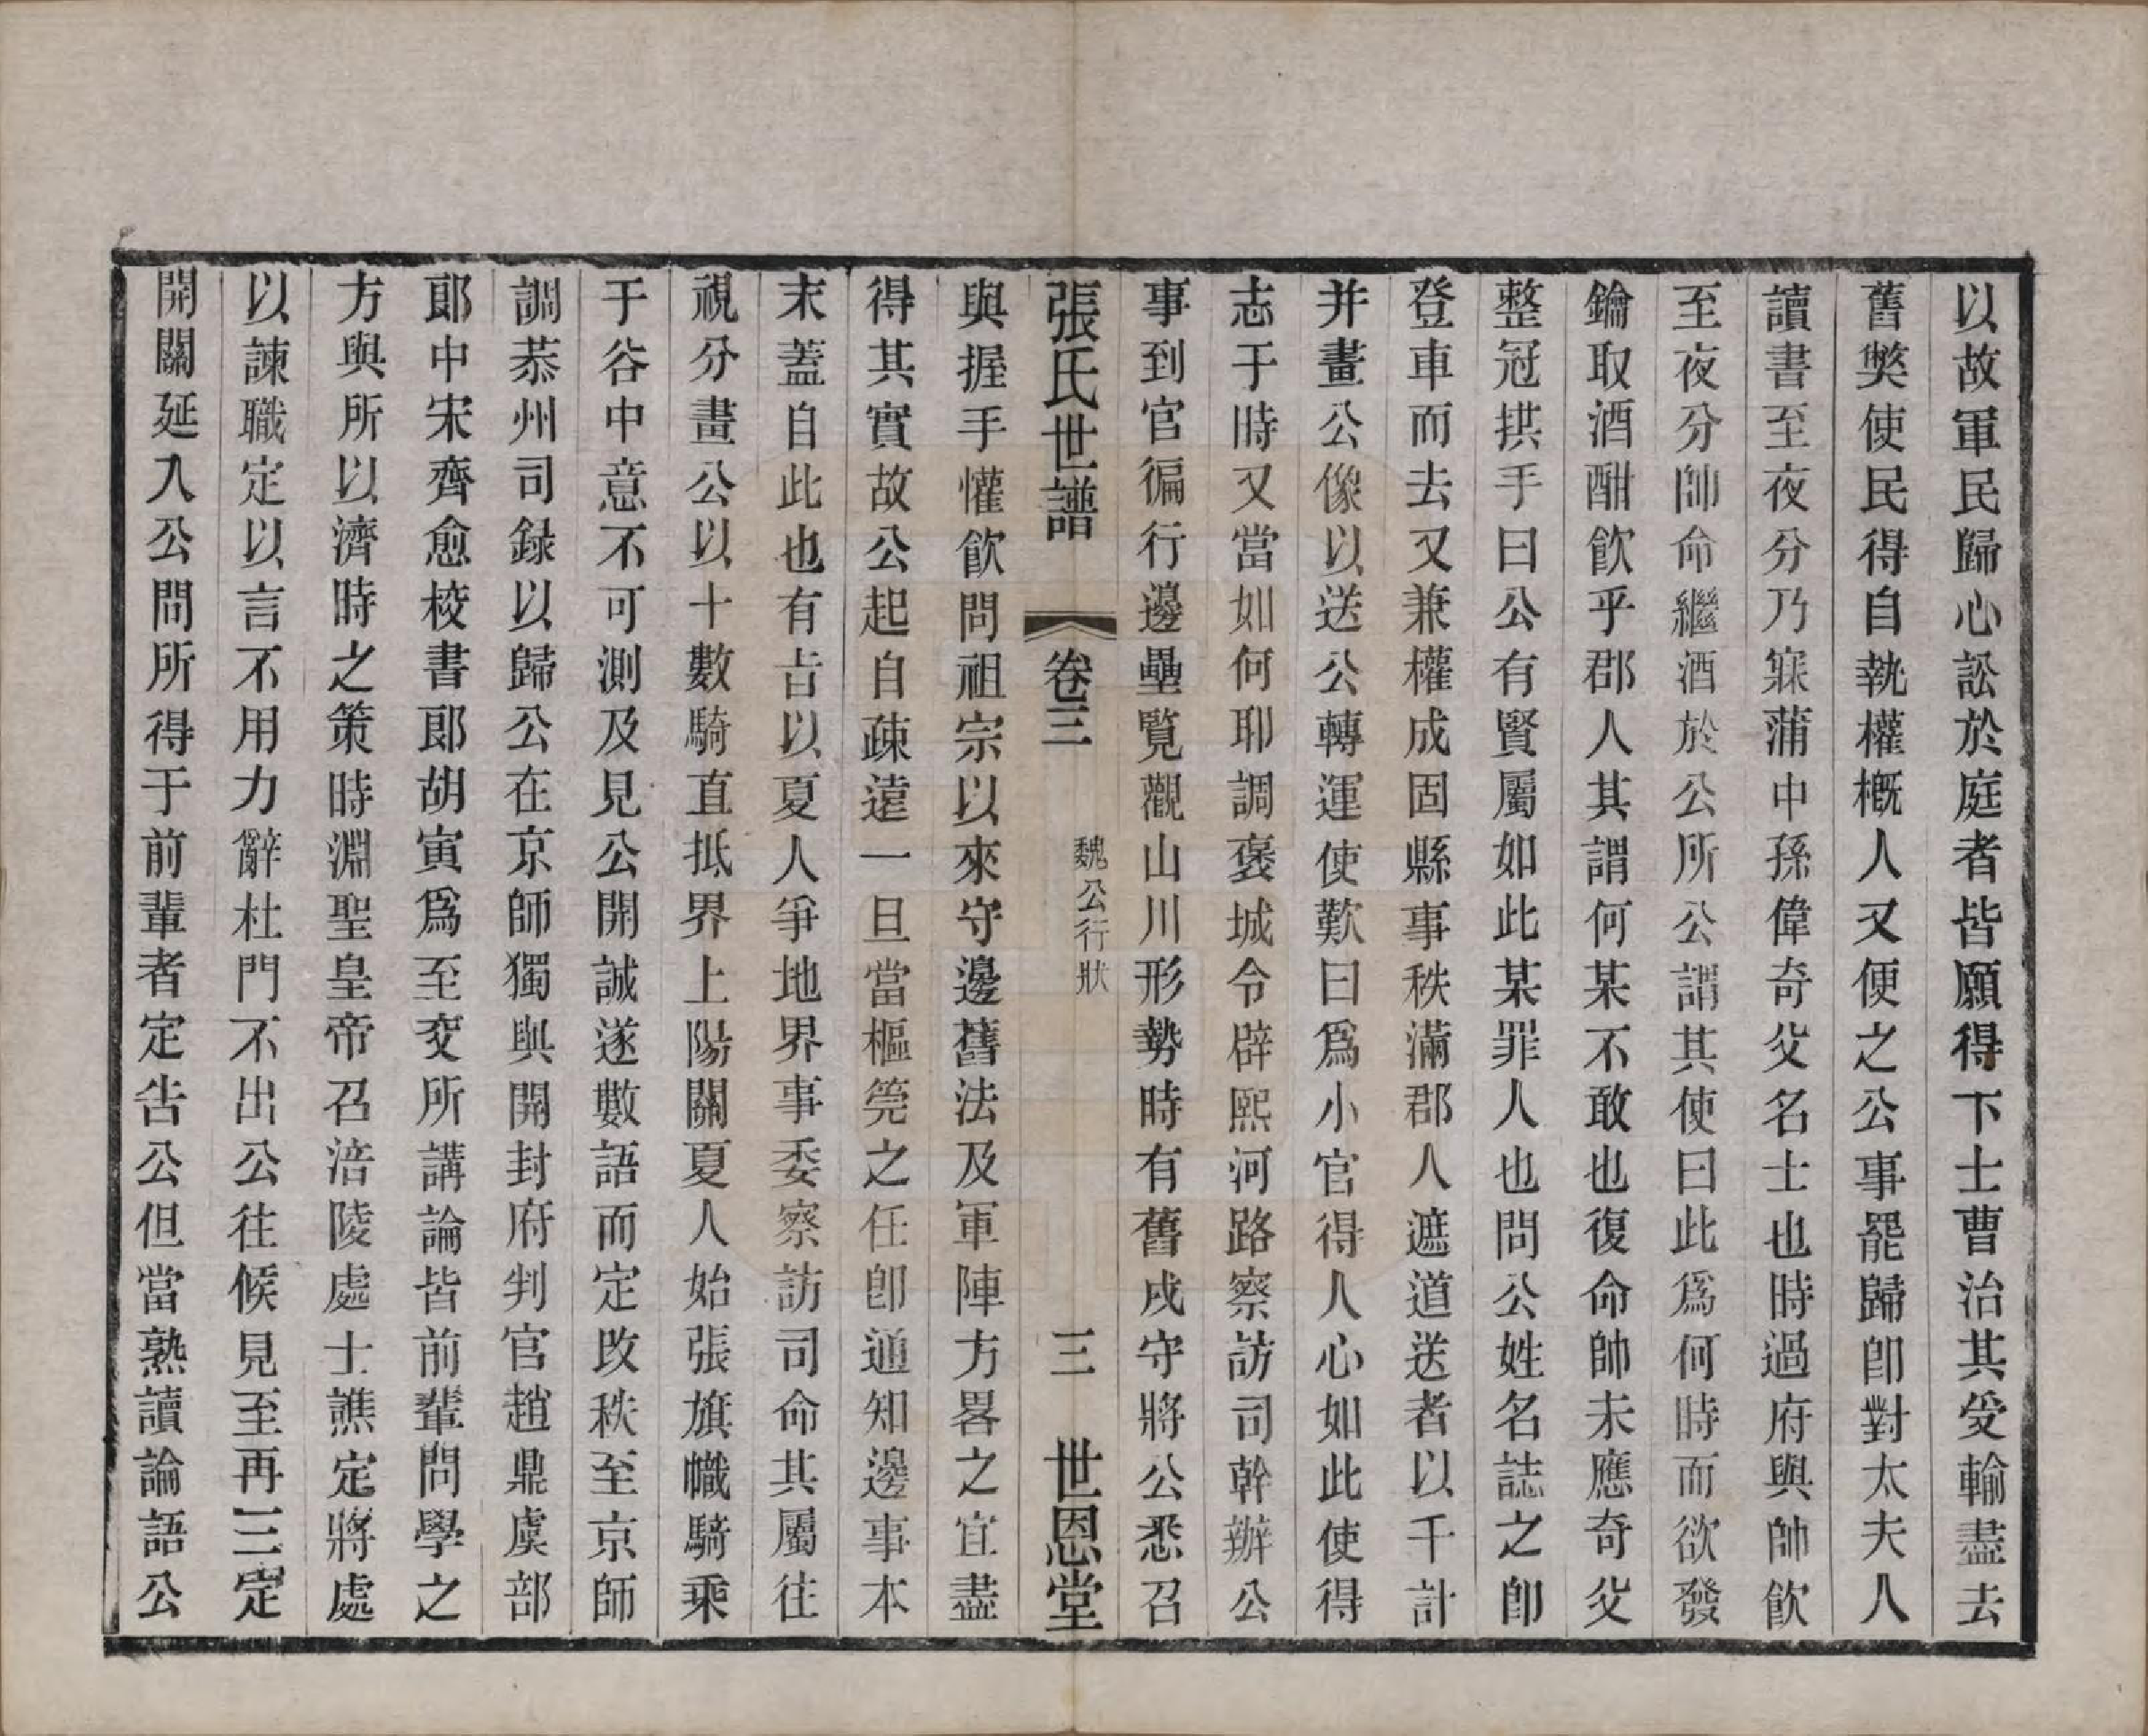 以故軍民歸心訟於庭者皆願得下士曹治其受輸盡去
舊獘使民得自執權概人又便之公事罷歸卽對太夫人
讀書至夜分乃寐蒲中孫偉奇父名士也時過府與帥飮
至夜分帥命繼酒於公所公謂其使曰此爲何時而欲發
鑰取酒酣飮乎郡人其謂何某不敢也復命帥未應奇父
整冠拱手曰公有賢屬如此某罪人也問公姓名誌之卽
登車而去又兼權成固縣事秩滿郡人遮道送者以千計
并畫公像以送公轉運使歎曰爲小官得人心如此使得
志于時又當如何耶調褒城令辟熙河路察訪司幹辦公
事到官徧行邊壘覽觀山川形勢時有舊戍守將公悉召
張氏世譜 卷三 魏公行狀 三 世恩堂
與握手懽飮問祖宗以來守邊舊法及軍陣方畧之宜盡
得其實故公起自疎遠一旦當樞筦之任卽通知邊事本
末蓋自此也有占以夏人爭地界事委察訪司命其屬往
視分畫公以十數騎直抵界上陽關夏人始張旗幟騎乘
于谷中意不可測及見公開誠遂數語而定改秩至京師
調恭州司録以歸公在京師獨與開封府判官趙鼎虞部
郞中宋齊愈校書郞胡寅爲至交所講論皆前輩問學之
方與所以濟時之策時淵聖皇帝召涪陵處士譙定將處
以諫職定以言不用力辭杜門不出公往候見至再三定
開關延入公問所得于前輩者定告公但當熟讀論語公